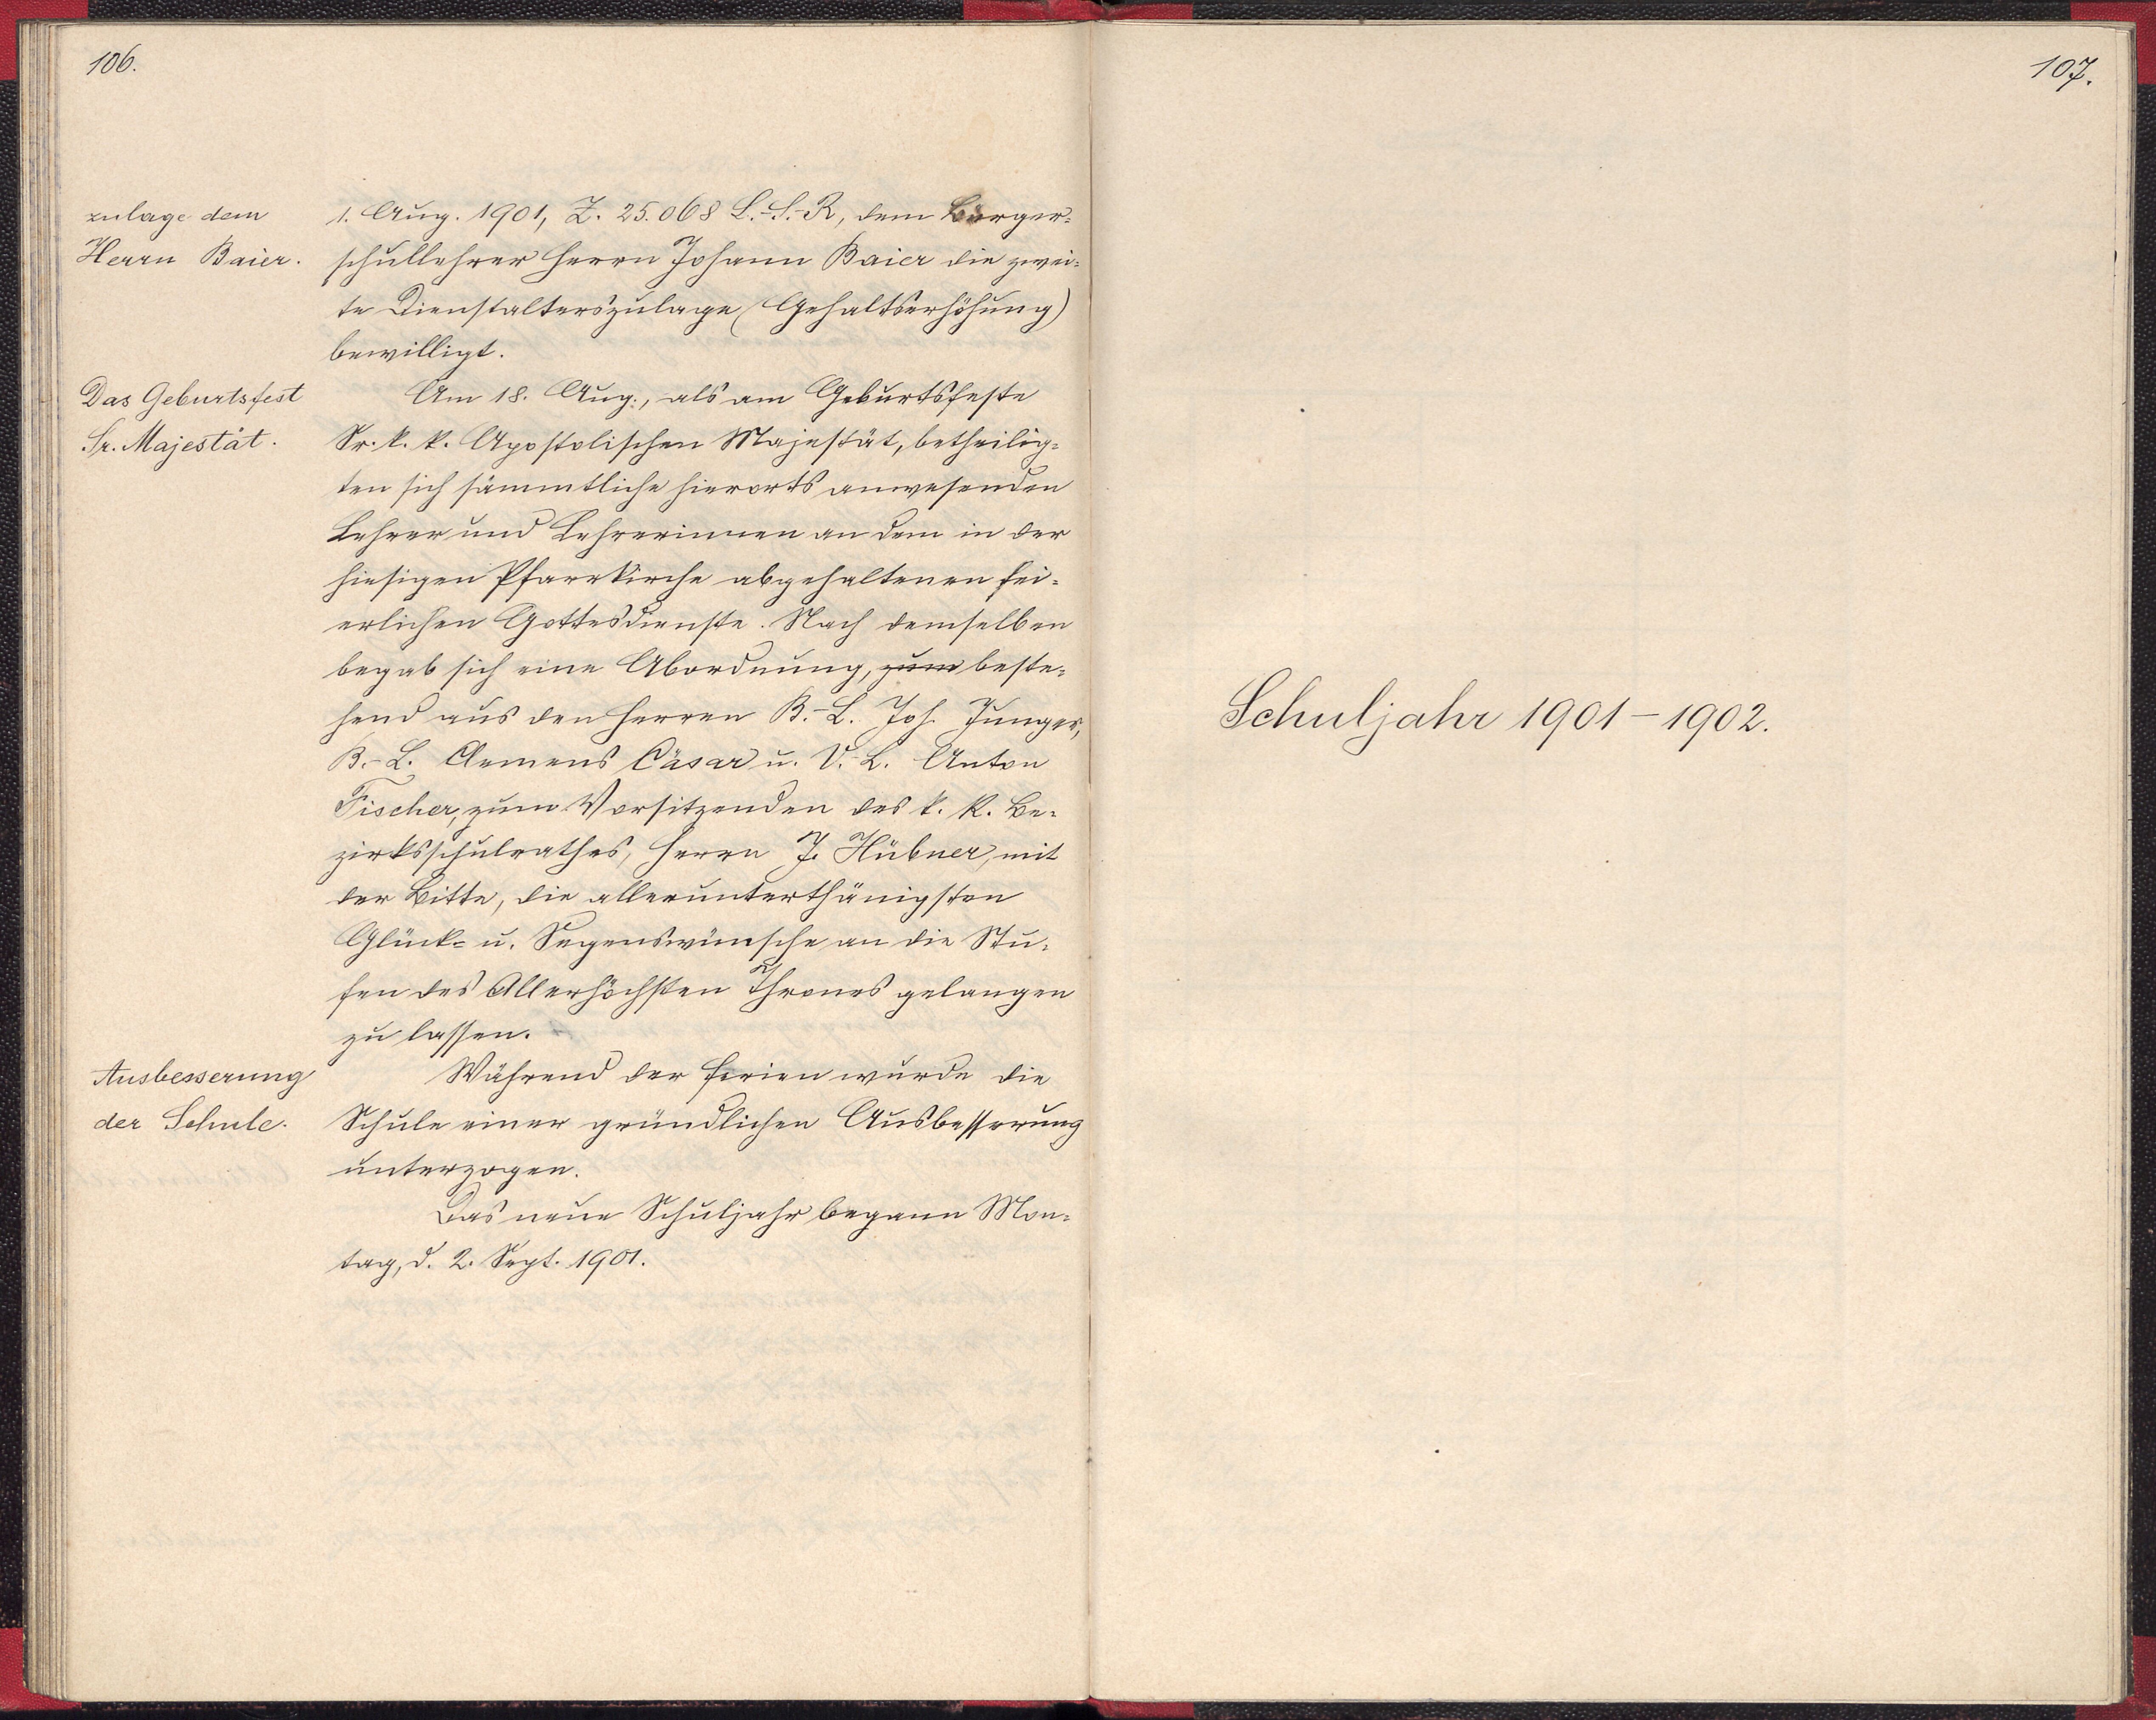 106.
zulage dem
Herrn Baier.
1. Aug. 1901, Z. 25.068 L.-S.-R, dem Bürger-
schullehrer Herrn Johann Baier die zwei-
te Dienstalterszulage (Gehaltserhöhung)
bewilligt.
Das Geburtsfest
Sr. Majestät.
Am 18. Aug., als am Geburtsfeste
Sr. k. k. Apostolischen Majestät, betheilig-
ten sich sämmtliche hierorts anwesenden
Lehrer und Lehrerinnen an dem in der
hiesigen Pfarrkirche abgehaltenen fei-
erlichen Gottesdienste. Nach demselben
begab sich eine Abordnung, zum beste-
hend aus den Herren B.-L. Joh. Junger,
B.-L. Clemens Cäsar u. V.-L. Anton
Fischer, zum Vorsitzenden des k. k. Be-
zirksschulrathes, Herrn J. Hübner, mit
der Bitte, die allerunterthänigsten
Glück- u. Segenswünsche an die Stu-
fen des Allerhöchsten Thrones gelangen
zu lassen.
Ausbesserung
der Schule.
Während der Ferien wurde die
Schule einer gründlichen Ausbesserung
unterzogen.
Das neue Schuljahr begann Mon-
tag, d. 2. Sept. 1901.
107.
Schuljahr 1901-1902.